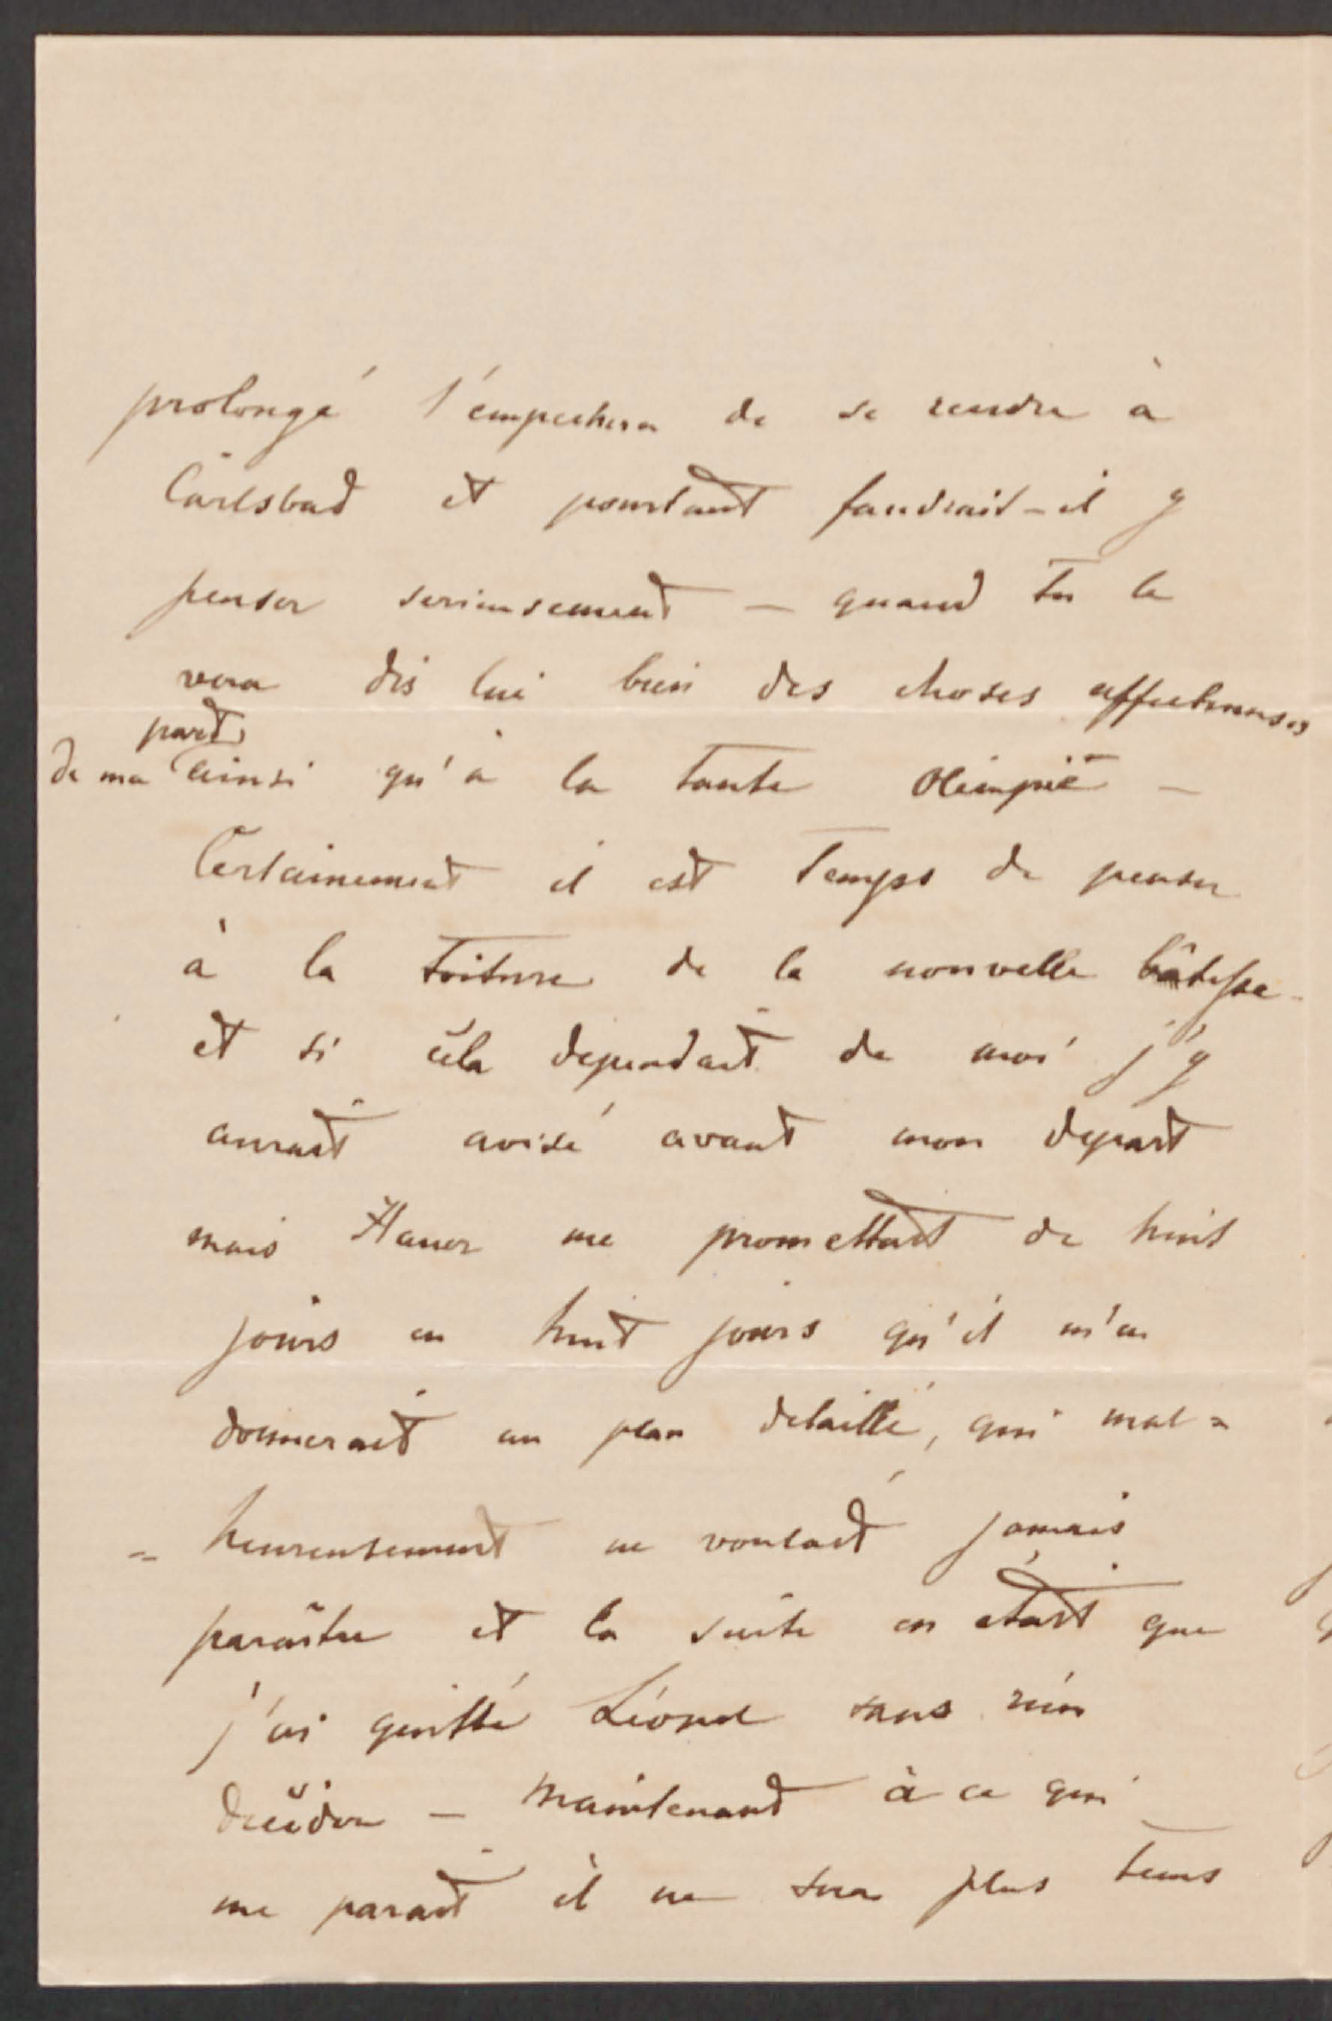 prolongé l'empechera de se rendre à
Carlsbad et pourtant faudrait-il y
penser serieusement — quand tu la
vera dis lui bien des choses affectueuses
part
de ma ainsi qu'à la tante Olimpie —
Certainement il est temps de penser
à la toiture de la nouvelle bâtisse
et si cela dependait de moi j'y
aurait avisé avant mon depart
mais Hauer me promettait de huit
jours en huit jours qu'il m'en
donnerait un plan detaillé, qui mal=
= heureusement ne voulait jamais
paraître et la suite en était que
j'ai quitté sans rien
decider — Maintenant à ce qui
me parait il ne sera plus tems